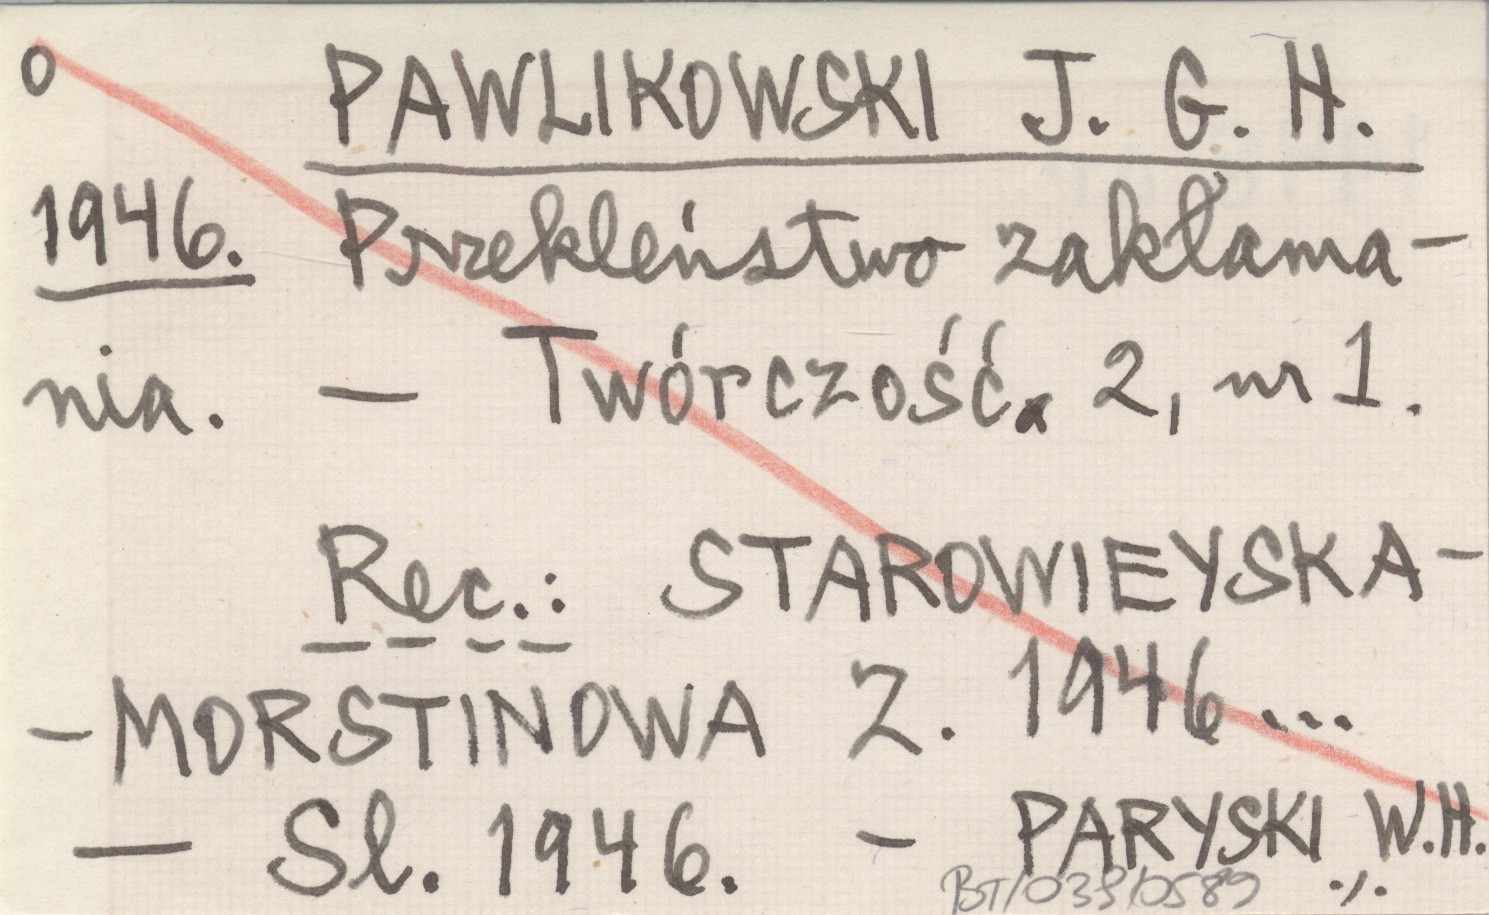 o PAWLIKOWSKI J. G. H.
1946. Przekleństwo zakłama-
nia. — Twórczość. 2, nr 1.
Rec.: STAROWIEYSKA-
-MORSTINOWA Z. 1946...
— Sl. 1946. - PARYSKI W.H.
BT/038/0589 ./.